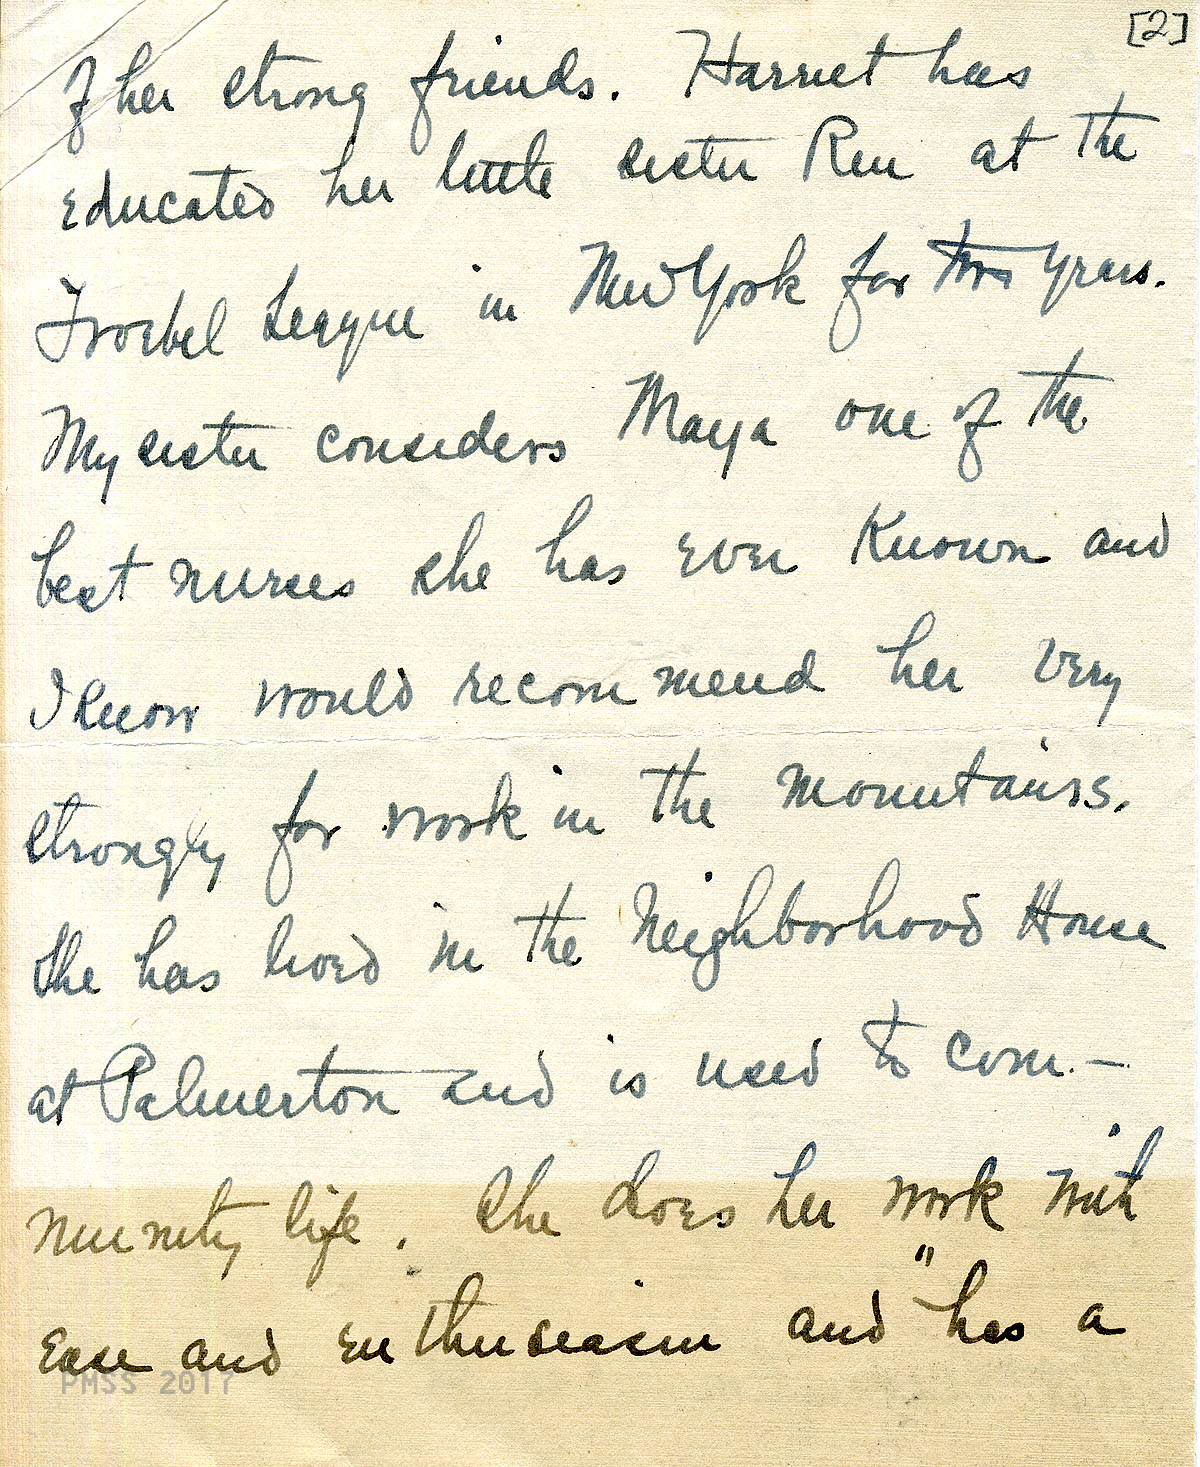 [2]
of her strong friends. Harriet has
educated her little sister Reu at the
Froebel League in New York for two years.
My sister considers Maya one of the
best nurses she has ever known and
I know would recommend her very
strongly for work in the mountains.
She has lived in the Neighborhood House
at Palmerton and is used to com-
munity life. She does her work with
ease and enthusiasm and "has a
PMSS 2017